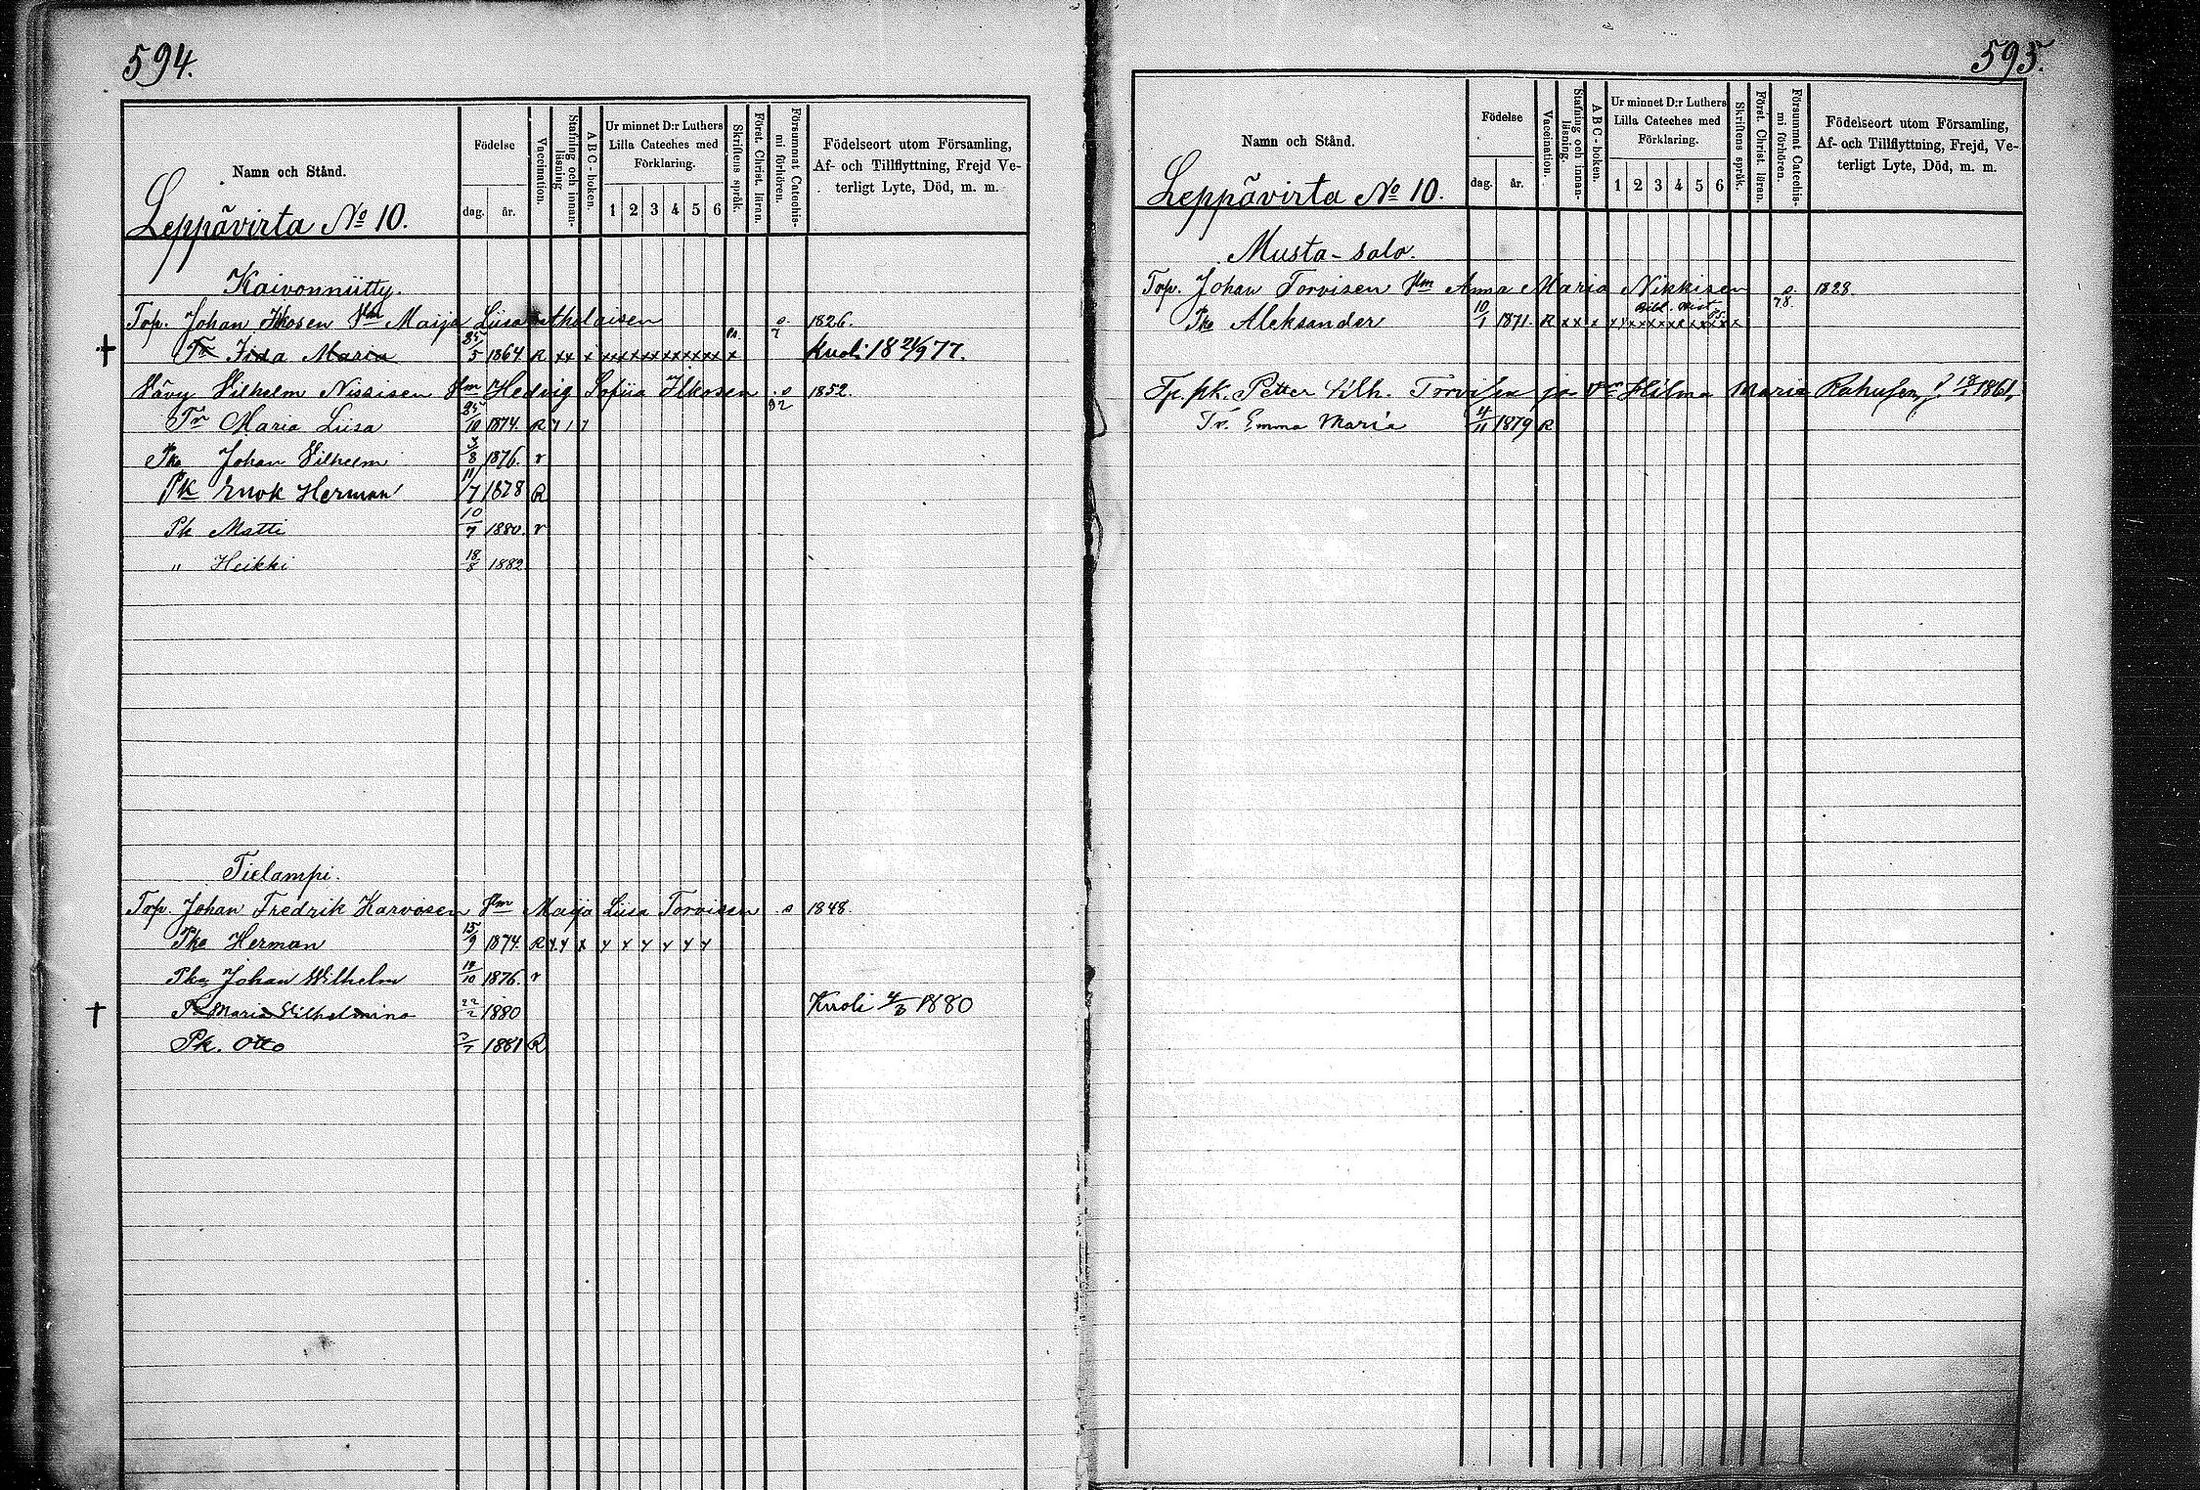 594.
Namn och Stånd.
Födelse
dag. år.
Vaccination.
Stafning och innan-läsning
A B C - boken.
Ur minnet D:r Luthers Lilla Cateches med Förklaring.
1 2 3 4 5 6
Skriftens språk.
Först. Christ. läran.
Försummat Catechis-mi förhören.
Födelseort utom Församling,
Af- och Tillflyttning, Frejd Ve-
terligt Lyte, Död, m. m.
Leppävirta No 10.
Kaivonniitty.
Torp. Johan Ikosen Vm Maija Liisa 1826.
Tr Fida Maria 25/5 1864 R xx x xxxxxxxxxxxx x Kuoli 18 21/9 77.
Vävy Vilhelm Nissisen Vm Hedvig Sofiia Ikosen 1852.
Tr Maria Liisa 25/10 1874. R
Pka Johan Vilhelm 3/8 1876. r
Pk Enok Herman 11/7 1878 R
Pk Matti 10/7 1880. r
" Heikki 18/8 1882
Tielampi.
Torp. Johan Fredrik Karvosen Vm Maija Liisa Torvisen s 1848.
Pka Herman 15/9 1874. R x x x x x x x x x
Pka Johan Wilhelm 14/10 1876. r
Tr Maria Vilhelmina 22/2 1880 Kuoli 4/3 1880
Pk. Otto 1881 R
595.
Namn och Stånd.
Födelse
dag. år.
Vaccination.
Stafning och innan-läsning.
A B C - boken.
Ur minnet D:r Luthers Lilla Cateches med Förklaring.
1 2 3 4 5 6
Skriftens språk.
Först. Christ. läran.
Försummat Catechis-mi förhören.
Födelseort utom Församling,
Af- och Tillflyttning, Frejd, Ve-
terligt Lyte, Död, m. m.
Leppävirta No 10.
Musta-salo.
Torp. Johan Torvisen Vm Anna Maria Nikkisen s. 78. 1828.
Pka Aleksander 10/1 1871. R xx x
Tp. pk. Petter Vilh. Torvisen ja Vm Hilma Maria Rahusen, 1861,
Tr. Emma Maria 4/11 1879 R